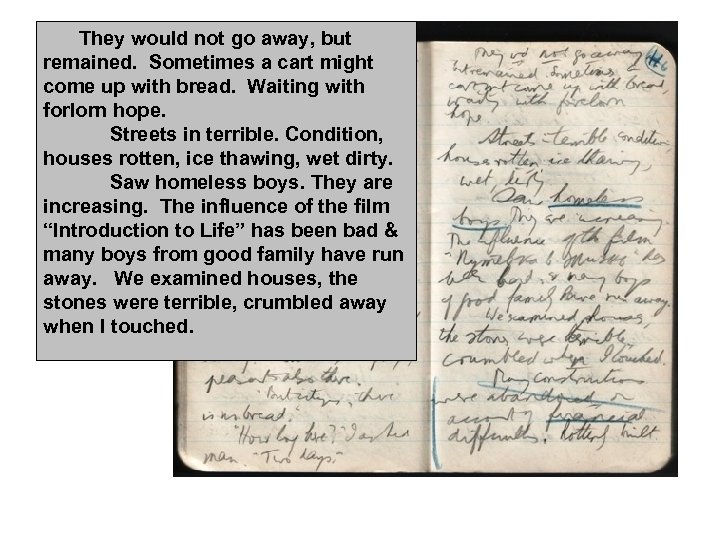 They would not go away, but
remained. Sometimes a cart might
come up with bread. Waiting with
forlorn hope.
Streets in terrible. Condition,
houses rotten, ice thawing, wet dirty.
Saw homeless boys. They are
increasing. The influence of the film
“Introduction to Life” has been bad &
many boys from good family have run
away. We examined houses, the
stones were terrible, crumbled away
when I touched.
peasants also there.
"But citizen, there
is no bread."
"How long here?" I asked
man. "Two days."
They wd not go away
but remained. Sometimes a
cart might come up with bread.
waiting with forlorn
hope.
Streets terrible condition,
houses rotten ice thawing,
wet, dirty
Saw homeless
boys. They are increasing.
The influence of the film
has
been bad & many boys
of good family have run away.
We examined houses,
the stones were terrible,
crumbled when I touched.
Many constructions
were abandoned on
account of financial
difficulties. Rottenly built.